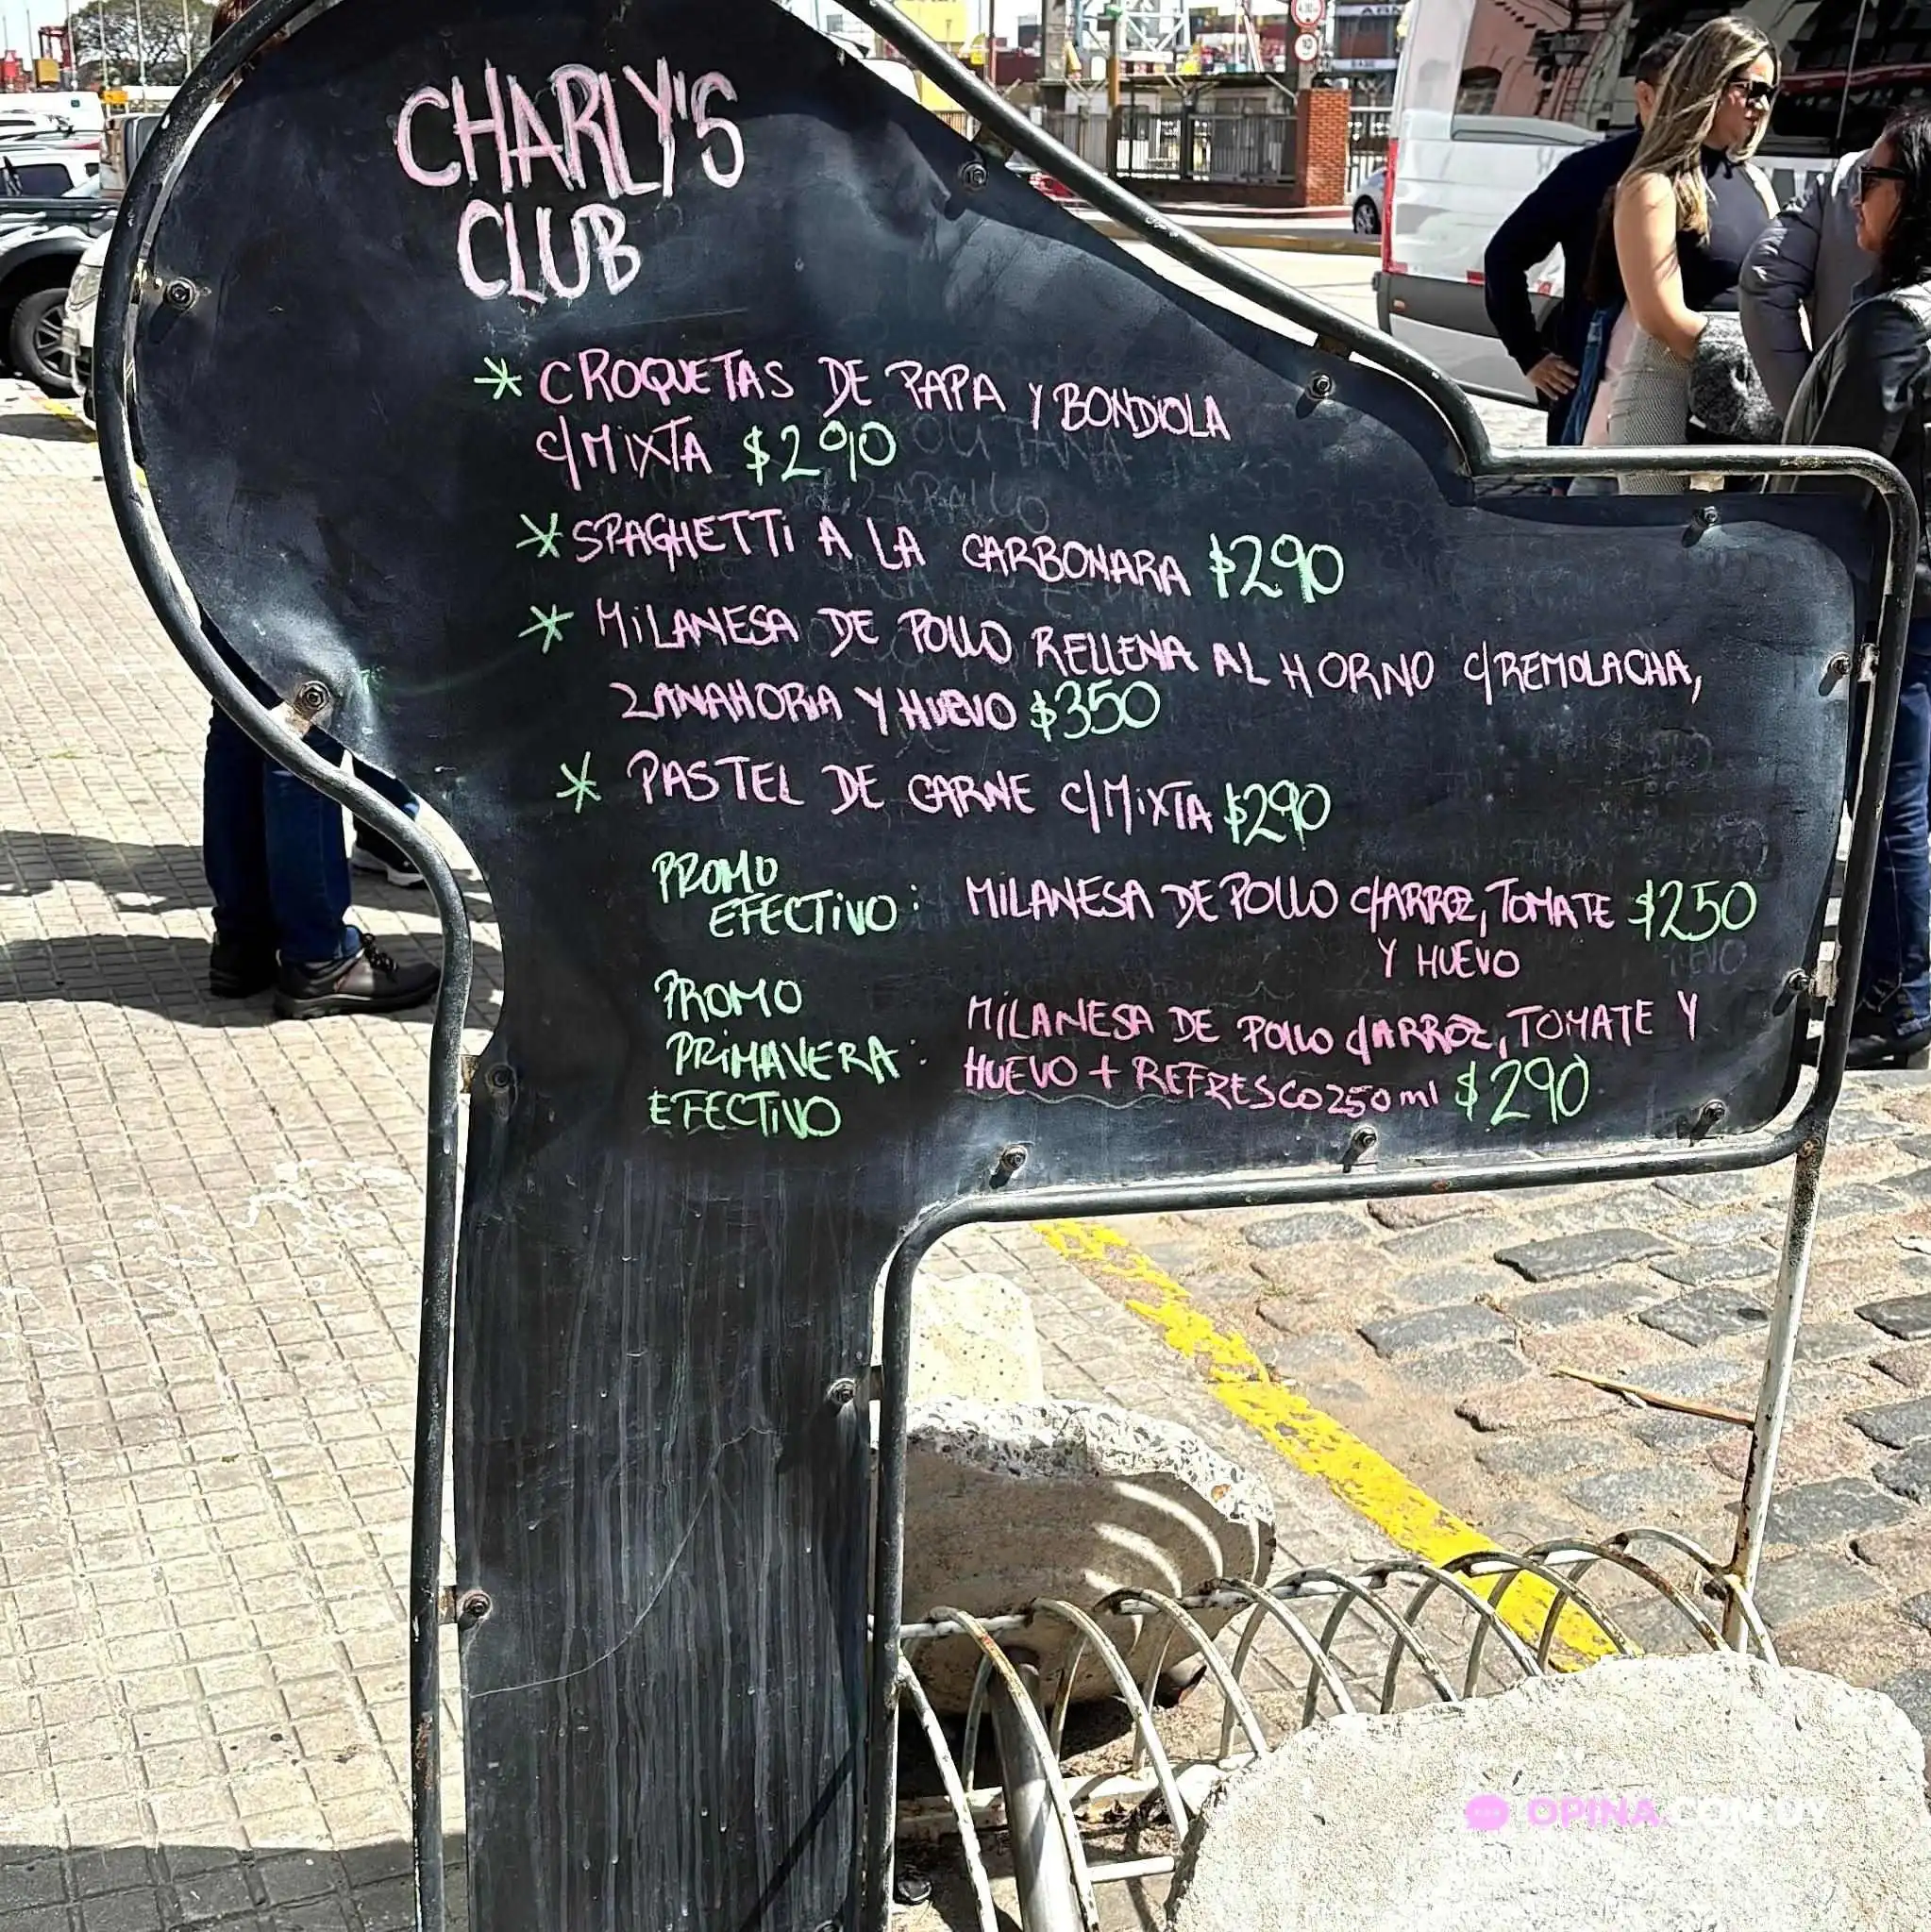 CHARLY'S
CLUB
* CROQUETAS DE PAPA Y BONDIOLA
C/MIXTA $290
* SPAGHETTI A LA CARBONARA $290
* MILANESA DE POLLO RELLENA AL HORNO C/REMOLACHA,
ZANAHORIA Y HUEVO $350
* PASTEL DE CARNE C/MIXTA $290
PROMO
EFECTIVO: MILANESA DE POLLO C/ARROZ, TOMATE $250
Y HUEVO
PROMO
PRIMAVERA:
EFECTIVO
MILANESA DE POLLO C/ARROZ, TOMATE Y
HUEVO + REFRESCO 250 ml $290
OPINA.COM.UY